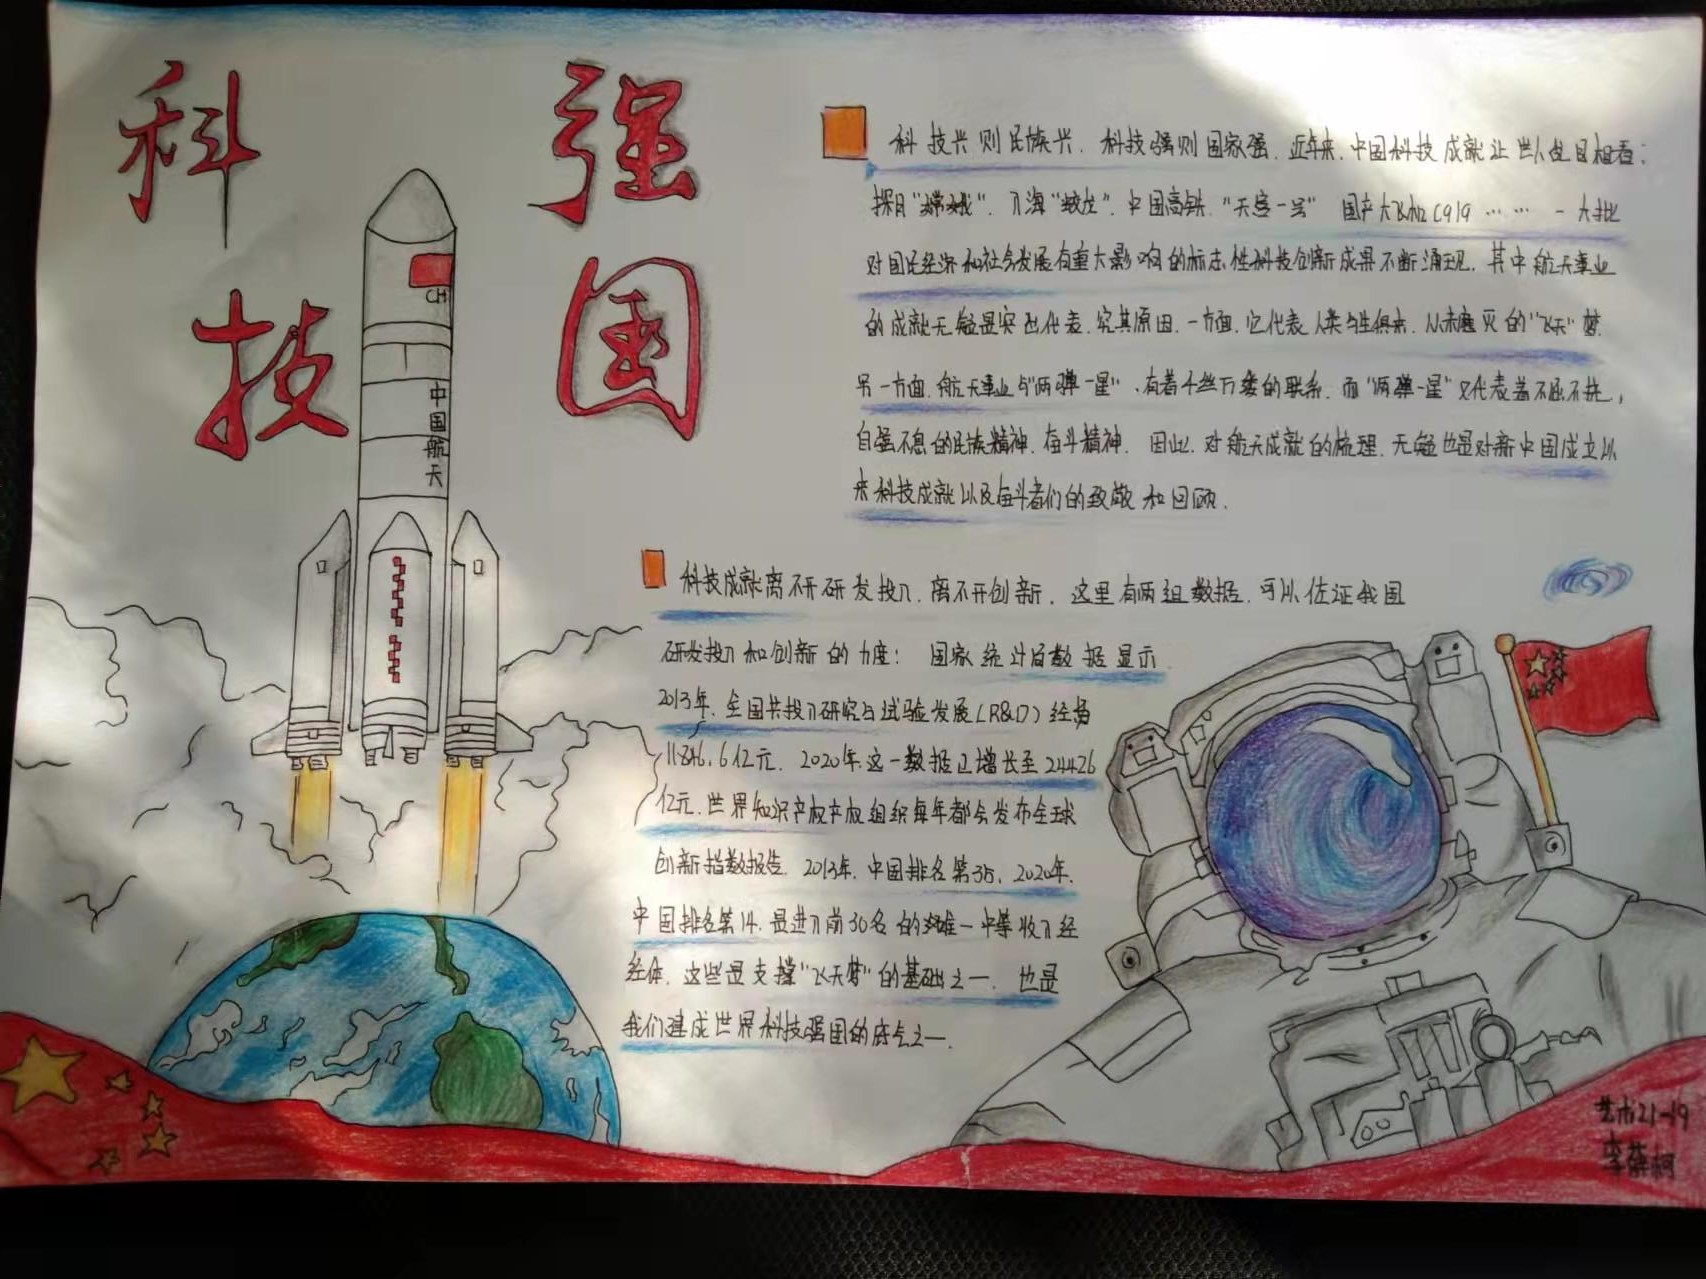 科技
强国
CH
中国航天
科技兴则民族兴，科技强则国家强，近年来，中国科技成就让世人刮目相看：
探月"嫦娥"，入海"蛟龙"，中国高铁，"天宫一号" 国产大飞机C919 …… 一大批
对国民经济和社会发展有重大影响的标志性科技创新成果不断涌现，其中航天事业
的成就无疑是突出代表，究其原因，一方面，它代表人类与生俱来，从未磨灭的"飞天"梦
另一方面，航天事业与"两弹一星"，有着千丝万缕的联系，而"两弹一星"又代表着不屈不挠，
自强不息的民族精神，奋斗精神，因此，对航天成就的梳理，无疑也是对新中国成立以
来科技成就以及奋斗者们的致敬和回顾．
科技成就离不开研发投入，离不开创新，这里有两组数据，可以佐证我国
研发投入和创新的力度： 国家统计局数据显示
2013年，全国共投入研究与试验发展(R&D)经费
11846.6亿元，2020年，这一数据已增长至24426
亿元，世界知识产权产权组织每年都会发布全球
创新指数报告，2013年，中国排名第35，2020年，
中国排名第14，是进入前30名的唯一中等收入经
经体，这些是支撑"飞天梦"的基础之一，也是
我们建成世界科技强国的底气之一．
艺术21-19